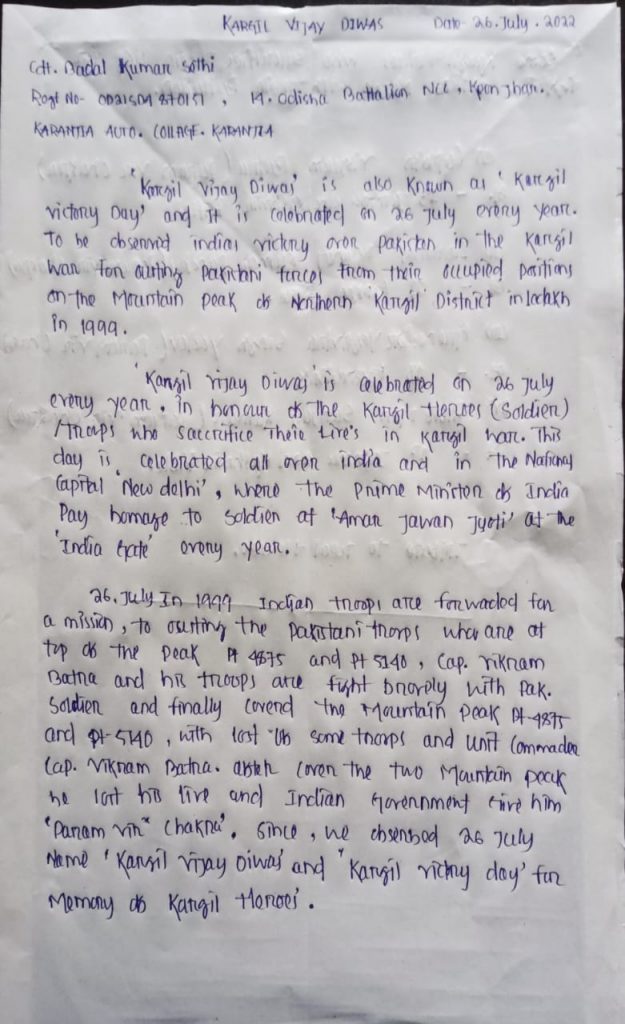 KARGIL VIJAY DIWAS Date- 26.July.2022
Cdt. Badal Kumar Sethi
Regt No- OD21SDA870151, 14. Odisha Battalion NCC, Keonjhar.
KARANJIA AUTO. COLLAGE. KARANJIA
'Kargil Vijay Diwas' is also Known as 'Kargil
victory Day' and it is celebrated on 26 July every year.
To be observed indias victory over pakistan in the Kargil
war for outing pakistani forces from their occupied poitions
on the Mountain peak of Northern 'Kargil' District in ladakh
in 1999.
'Kargil Vijay Diwas' is celebrated on 26 July
every year. in honour of the Kargil Heroes (Soldier)
/troops who saccrifice their Live's in Kargil war. This
day is celebrated all over india and in the National
Capital 'New delhi', where the Prime Minister of India
Pay homage to Soldier at 'Amar Jawan Jyoti' at the
'India Gate' every year.
26.July In 1999 Indian troops are forwaded for
a mission, to outing the Pakistani troops who are at
top of the Peak Pt 4875 and Pt 5140, Cap. Vikram
Batra and his troops are fight bravely with Pak.
Soldier and finally coverd the Mountain Peak Pt-4875
and Pt-5140, with lost of some troops and unit Commader
Cap. Vikram Batra. after cover the two Mountain peak
he lost his live and Indian Government Give him
"Param vir" Chakra'. Since, we obserbed 26 July
Name 'Kargil Vijay Diwas' and "Kargil victry day' for
Memory of Kargil Heroes'.